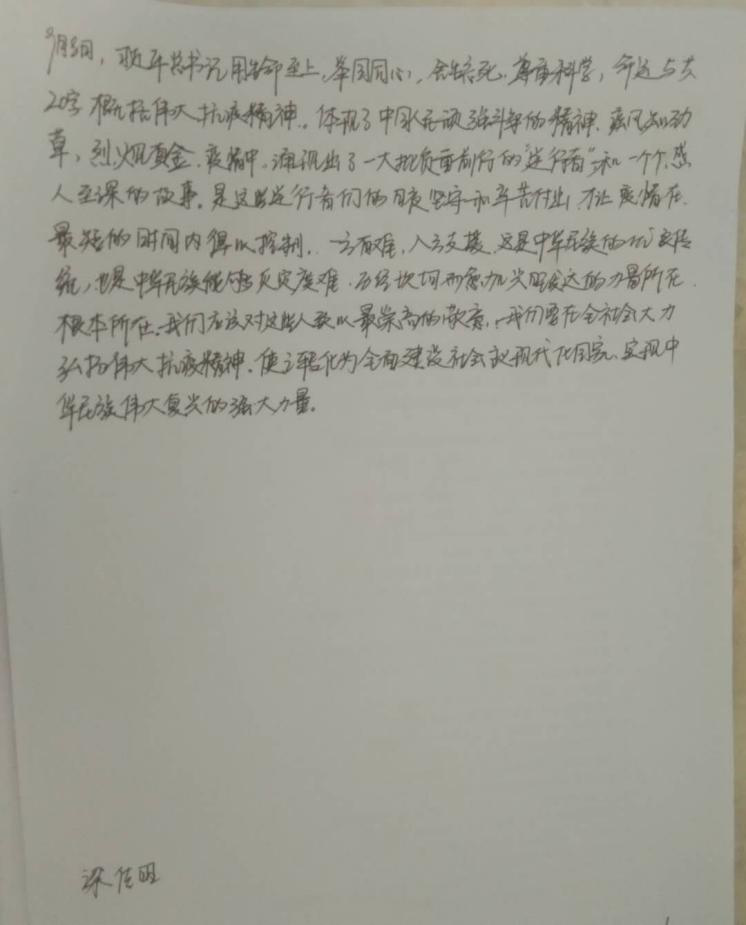 9月8日，习近平总书记用生命至上，举国同心，舍生忘死，尊重科学，命运与共
20字概括伟大抗疫精神。体现了中国人民顽强斗争的精神。疾风知劲
草，烈火见真金，疫情中，涌现出了一大批负重前行的"逆行者"和一个个感
人至深的故事。是这些逆行者们的日夜坚守和辛苦付出，才让疫情在
最短的时间内得以控制。一方有难，八方支援，这是中华民族的优良传
统，也是中华民族能够灾度难，历经坎坷而愈加兴旺发达的力量所在，
根本所在。我们应该对这些人致以最崇高的敬意，我们要在全社会大力
弘扬伟大抗疫精神，使之转化为全面建设社会主义现代化国家、实现中
华民族伟大复兴的强大力量。